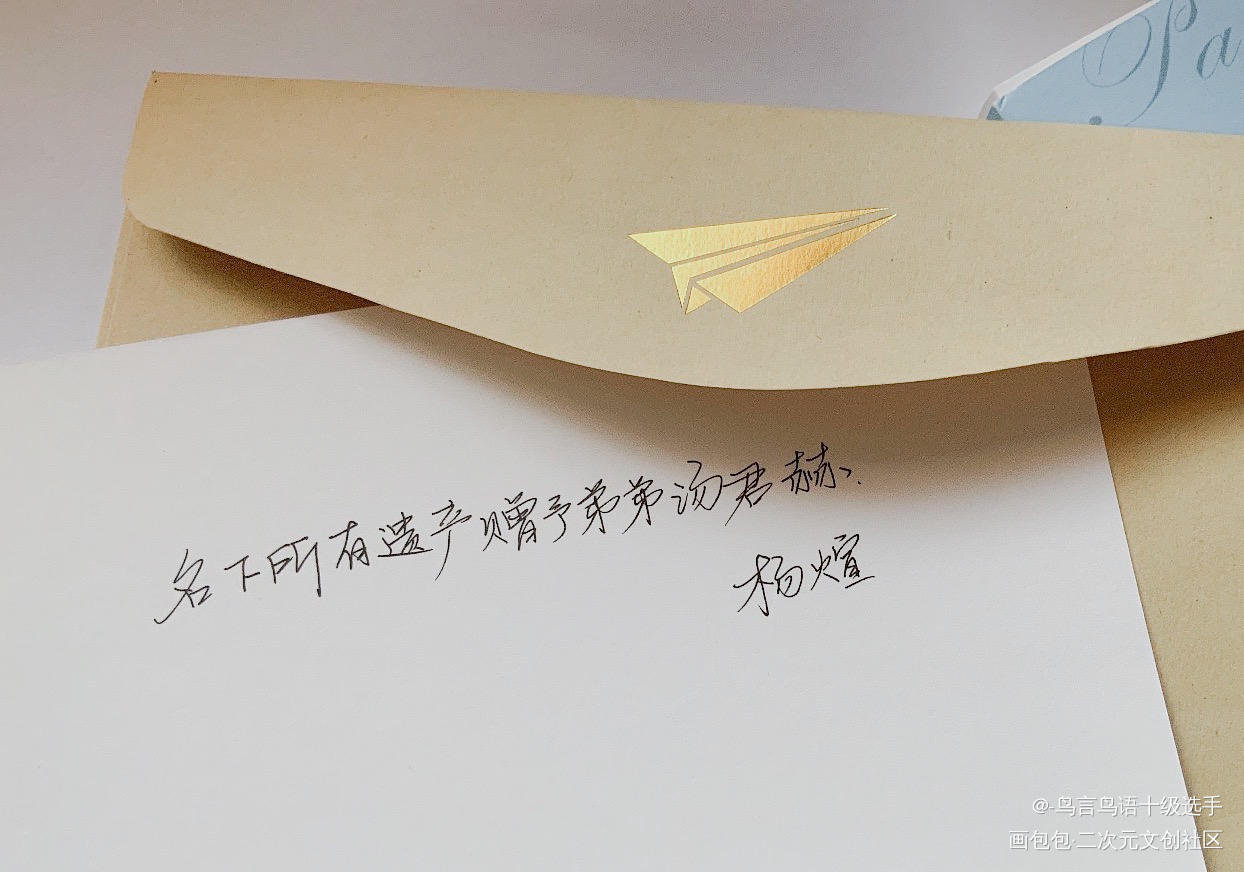 Pa
名下所有遗产赠予弟弟汤君赫.
杨煊
@-鸟言鸟语十级选手
画包包·二次元文创社区